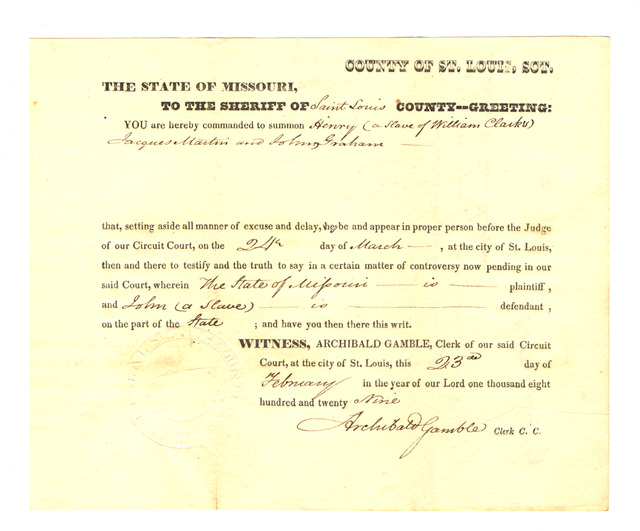 COUNTY OF ST. LOUIS, SCT.
THE STATE OF MISSOURI,
TO THE SHERIFF OF Saint Louis COUNTY--GREETING:
YOU are hereby commanded to summon Henry (a slave of William Clarks)
Jacques Martin and John Graham —
that, setting aside all manner of excuse and delay, they be and appear in proper person before the Judge
of our Circuit Court, on the 24th day of March — , at the city of St. Louis,
then and there to testify and the truth to say in a certain matter of controversy now pending in our
said Court, wherein The State of Missouri — is — plaintiff ,
and John (a Slave) — is — defendant ,
on the part of the State ; and have you then there this writ.
WITNESS, ARCHIBALD GAMBLE, Clerk of our said Circuit
Court, at the city of St. Louis, this 23rd day of
February in the year of our Lord one thousand eight
hundred and twenty Nine
Archibald Gamble Clerk C. C.